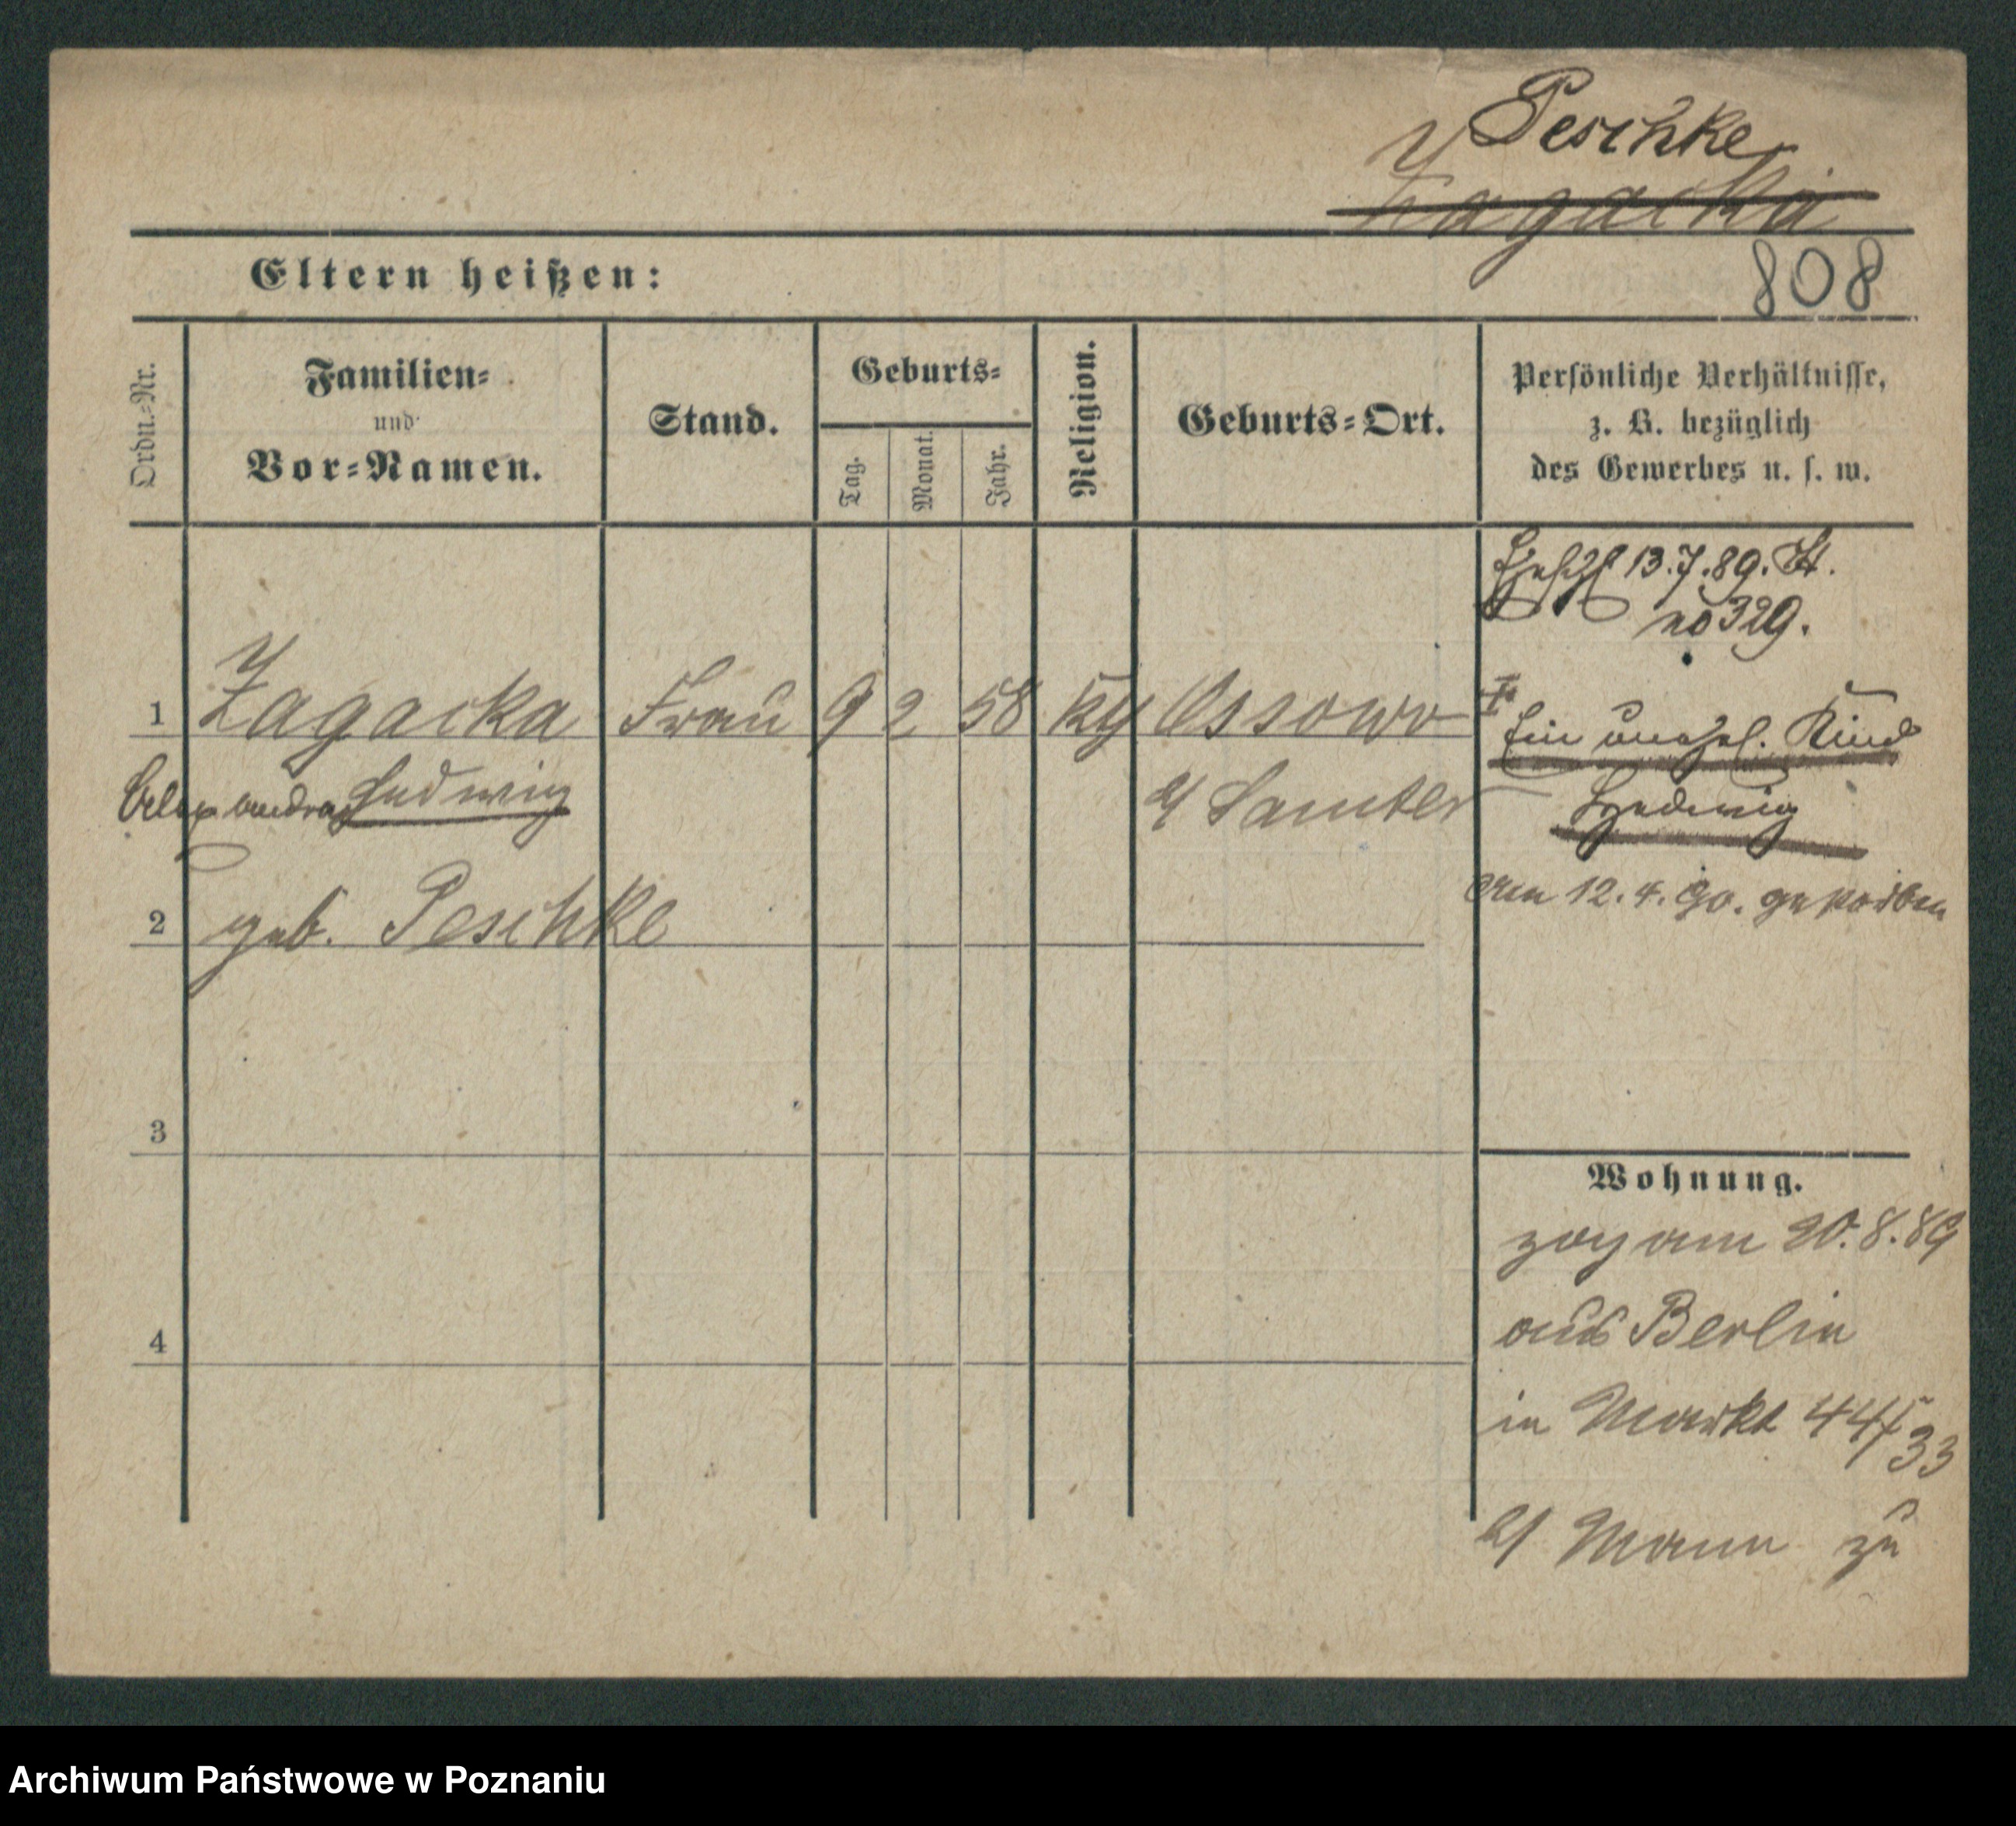 Peschke
Zagacka
808
Eltern heißen:
Ordn.-Nr.
Familien-
und
Vor-Namen.
Stand.
Geburts-
Tag.
Monat.
Jahr.
Religion.
Geburts-Ort.
Persönliche Verhältnisse,
z. B. bezüglich
des Gewerbes u. s. w.
13.7.89. St.
no 329.
1 Zagacka Frau 9 2 58 Ossowo
Ein unehel. Kind
Hedwig
Samter
am 12.4.90. gestorben
2 geb. Peschke
3
4
Wohnung.
zog am 20.8.89
aus Berlin
in Markt 44/
33
Mann zu
Archiwum Państwowe w Poznaniu